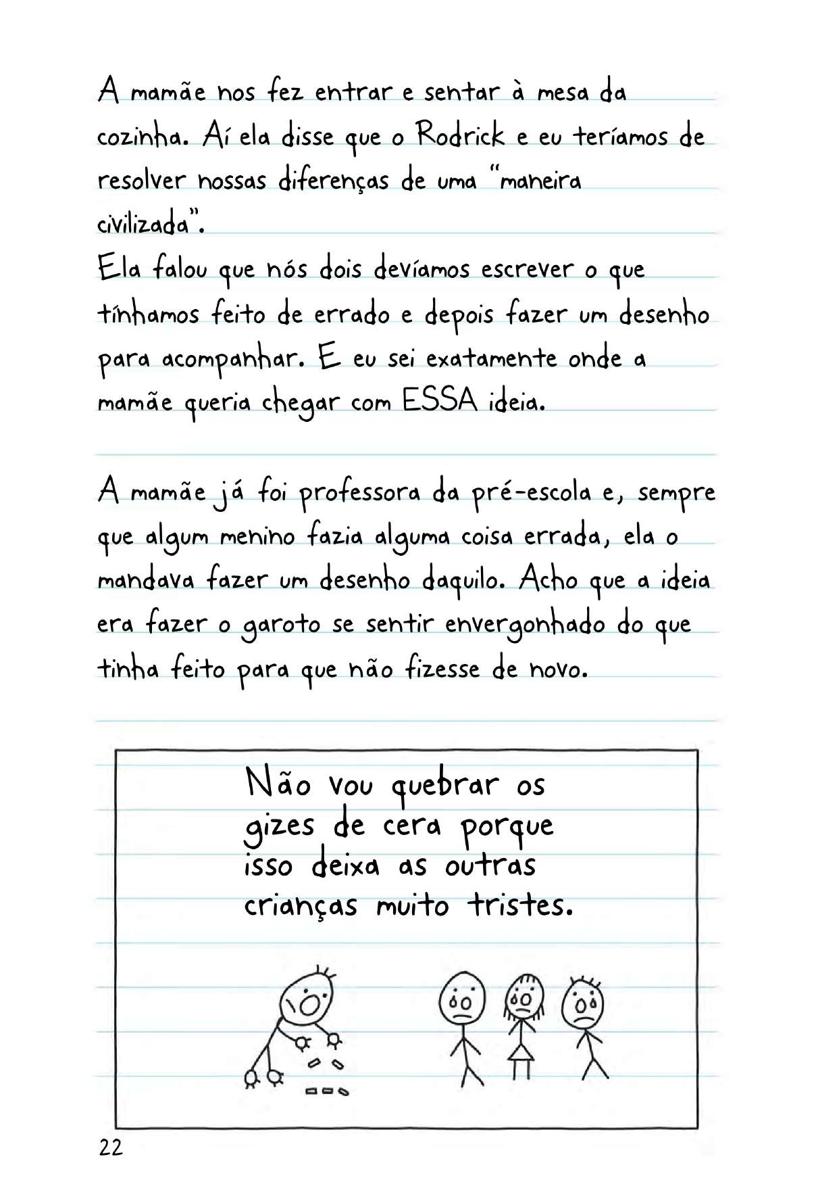 A mamãe nos fez entrar e sentar à mesa da
cozinha. Aí ela disse que o Rodrick e eu teríamos de
resolver nossas diferenças de uma “maneira
civilizada”.
Ela falou que nós dois devíamos escrever o que
tínhamos feito de errado e depois fazer um desenho
para acompanhar. E eu sei exatamente onde a
mamãe queria chegar com ESSA ideia.
A mamãe já foi professora da pré-escola e, sempre
que algum menino fazia alguma coisa errada, ela o
mandava fazer um desenho daquilo. Acho que a ideia
era fazer o garoto se sentir envergonhado do que
tinha feito para que não fizesse de novo.
Não vou quebrar os
gizes de cera porque
isso deixa as outras
crianças muito tristes.
22